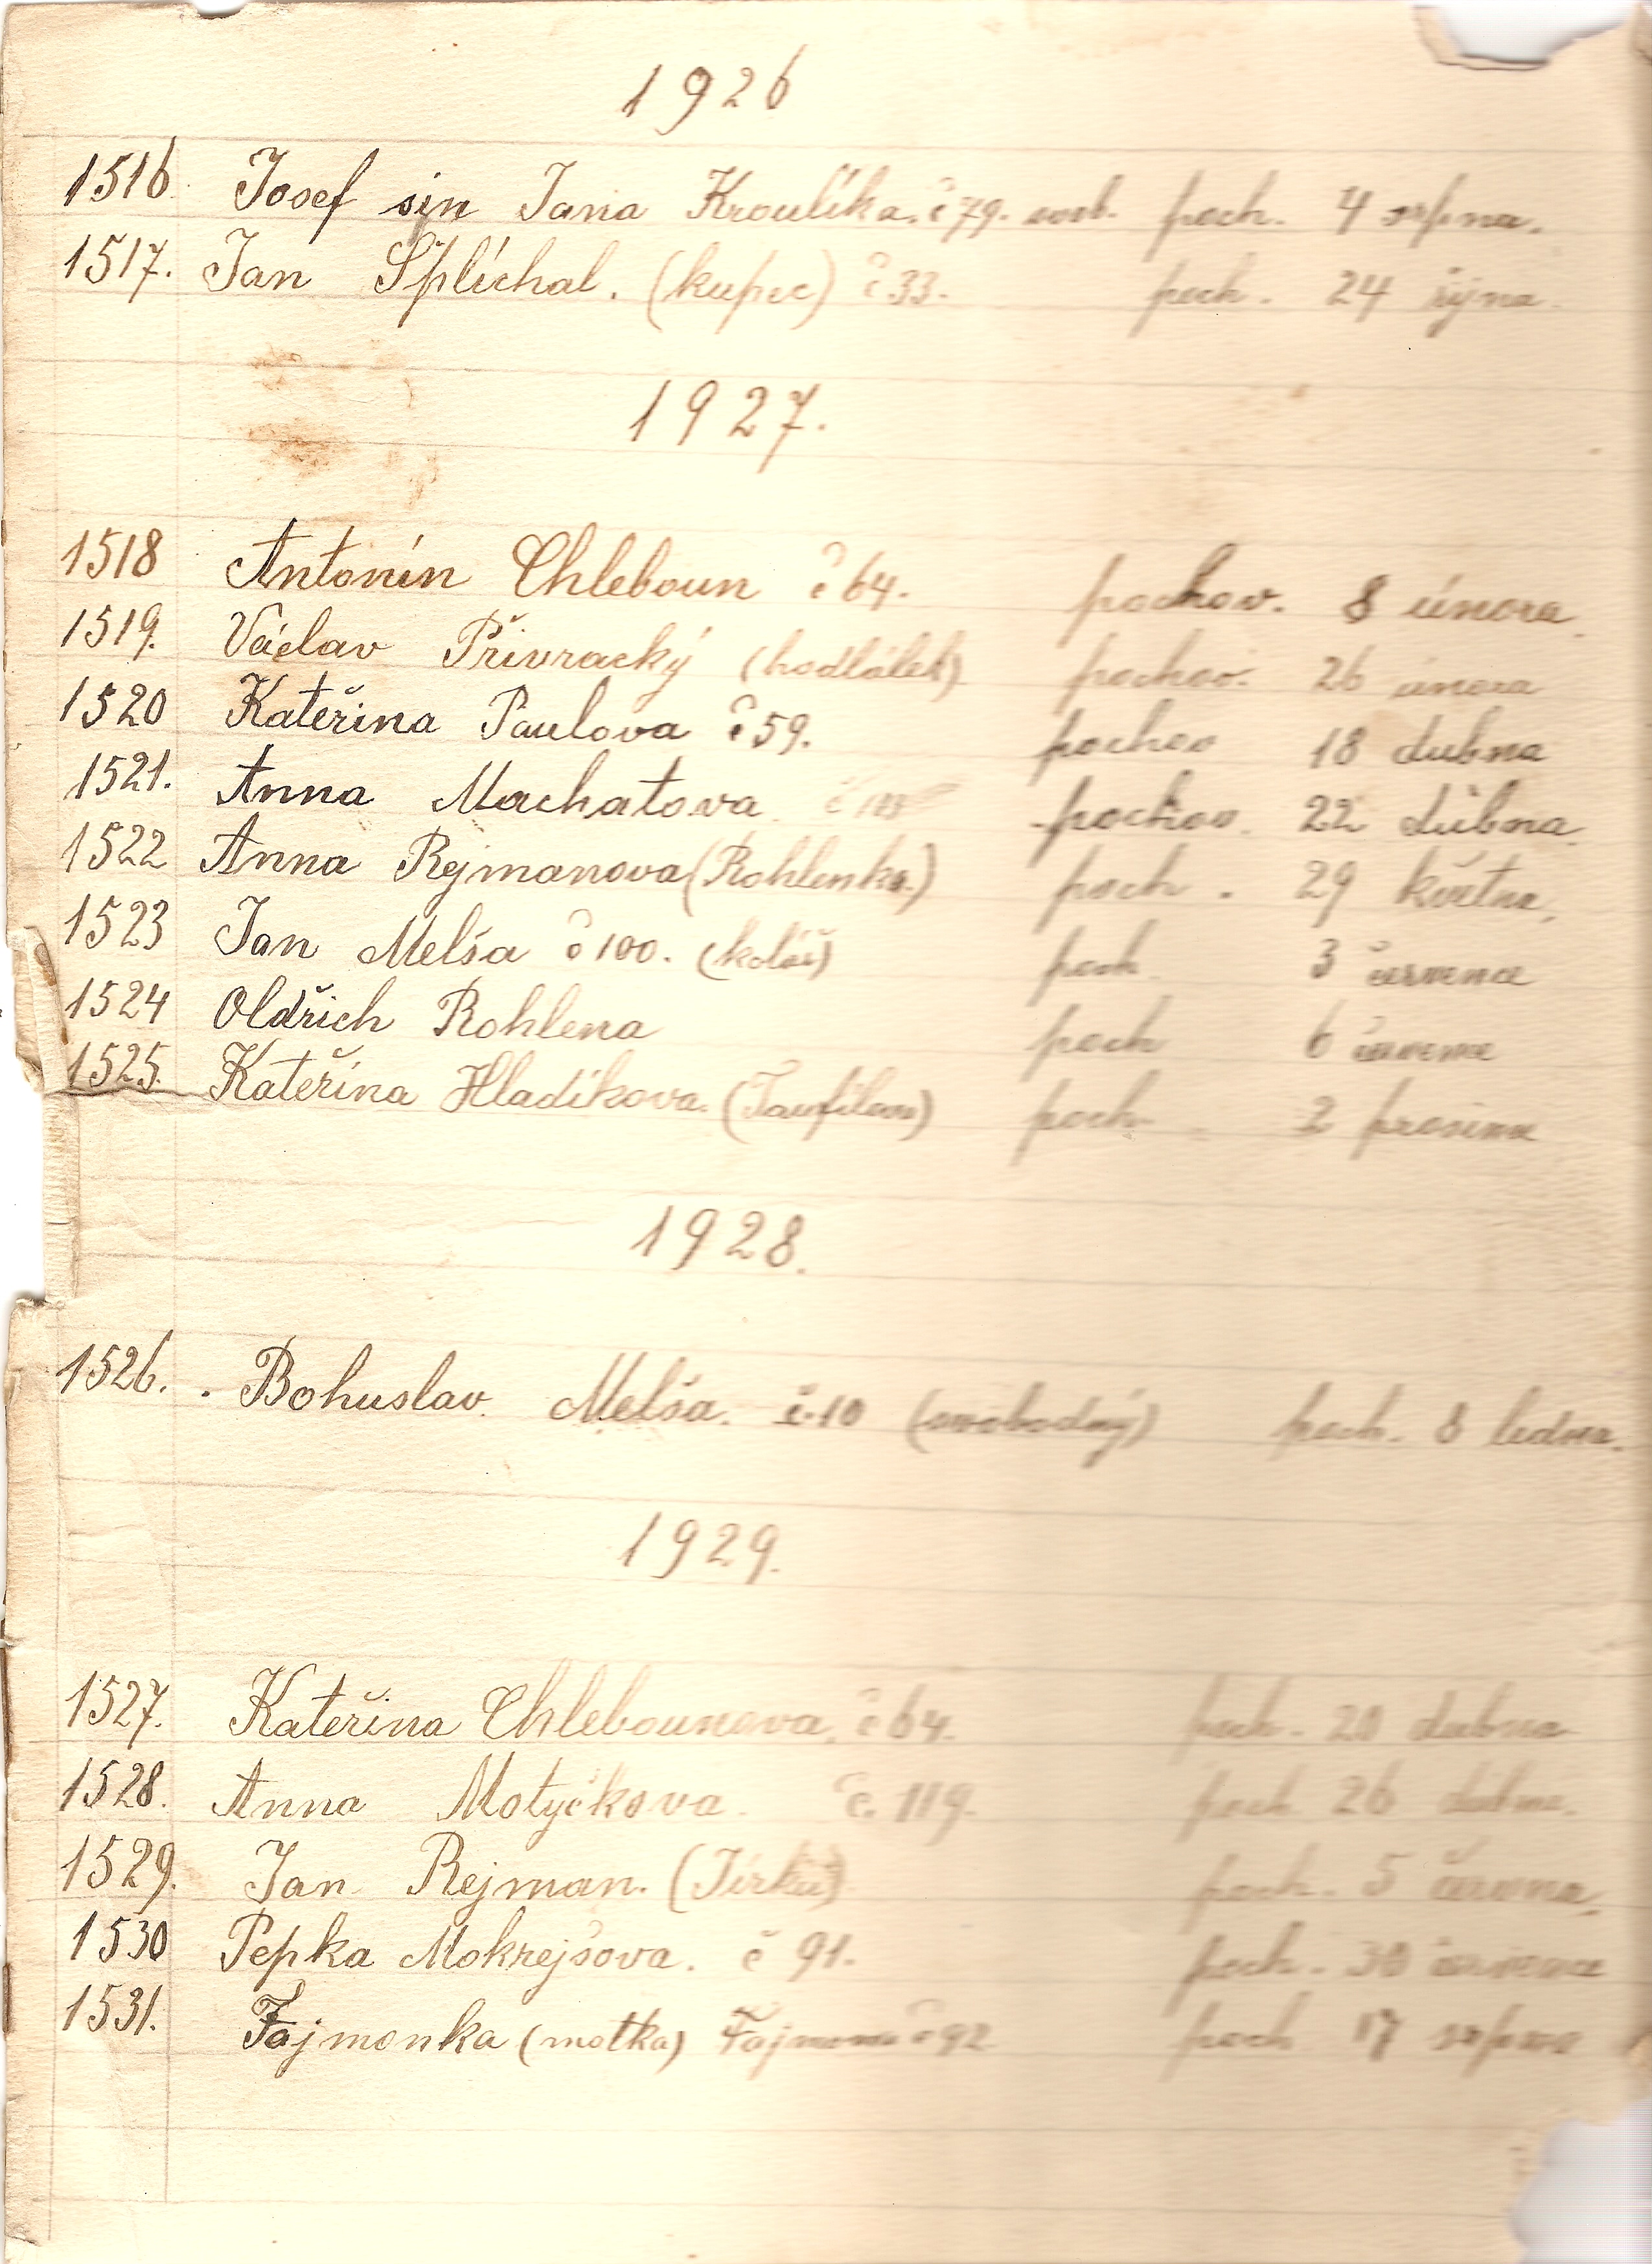 1926
1516. Josef sin Jana Kroulíka. č 79. svob. poch. 4 srpna.
1517. Jan Šplíchal. (kupec) č 33. poch. 24 října.
1927.
1518 Antonín Chleboun č 64. pochov. 8 února.
1519. Václav Přívracký pochov. 26 února
1520 Kateřina Paulova č 59. pochov 18 dubna
1521. Anna Machatova pochov. 22 dubna.
1522 Anna Rejmanova (Rohlenka.) poch. 29 května.
1523 Jan Melša č 100. (kolář) poch 3 července
1524 Oldřich Rohlena poch 6 července
1525. Kateřina Hladíkova. poch. 2 prosince
1928.
1526. Bohuslav. Melša. č. 10 (svobodný) poch. 8 ledna.
1929.
1527. Kateřina Chlebounova. č 64. poch. 20 dubna
1528. Anna Motyčkova. č. 119. poch 26 dubna.
1529. Jan Rejman. (Jirků) poch. 5 června.
1530 Pepka Mokrejšova. č 91. poch. 30 července
1531. Fajmonka (matka) Fajmona č 92 poch 17 srpna